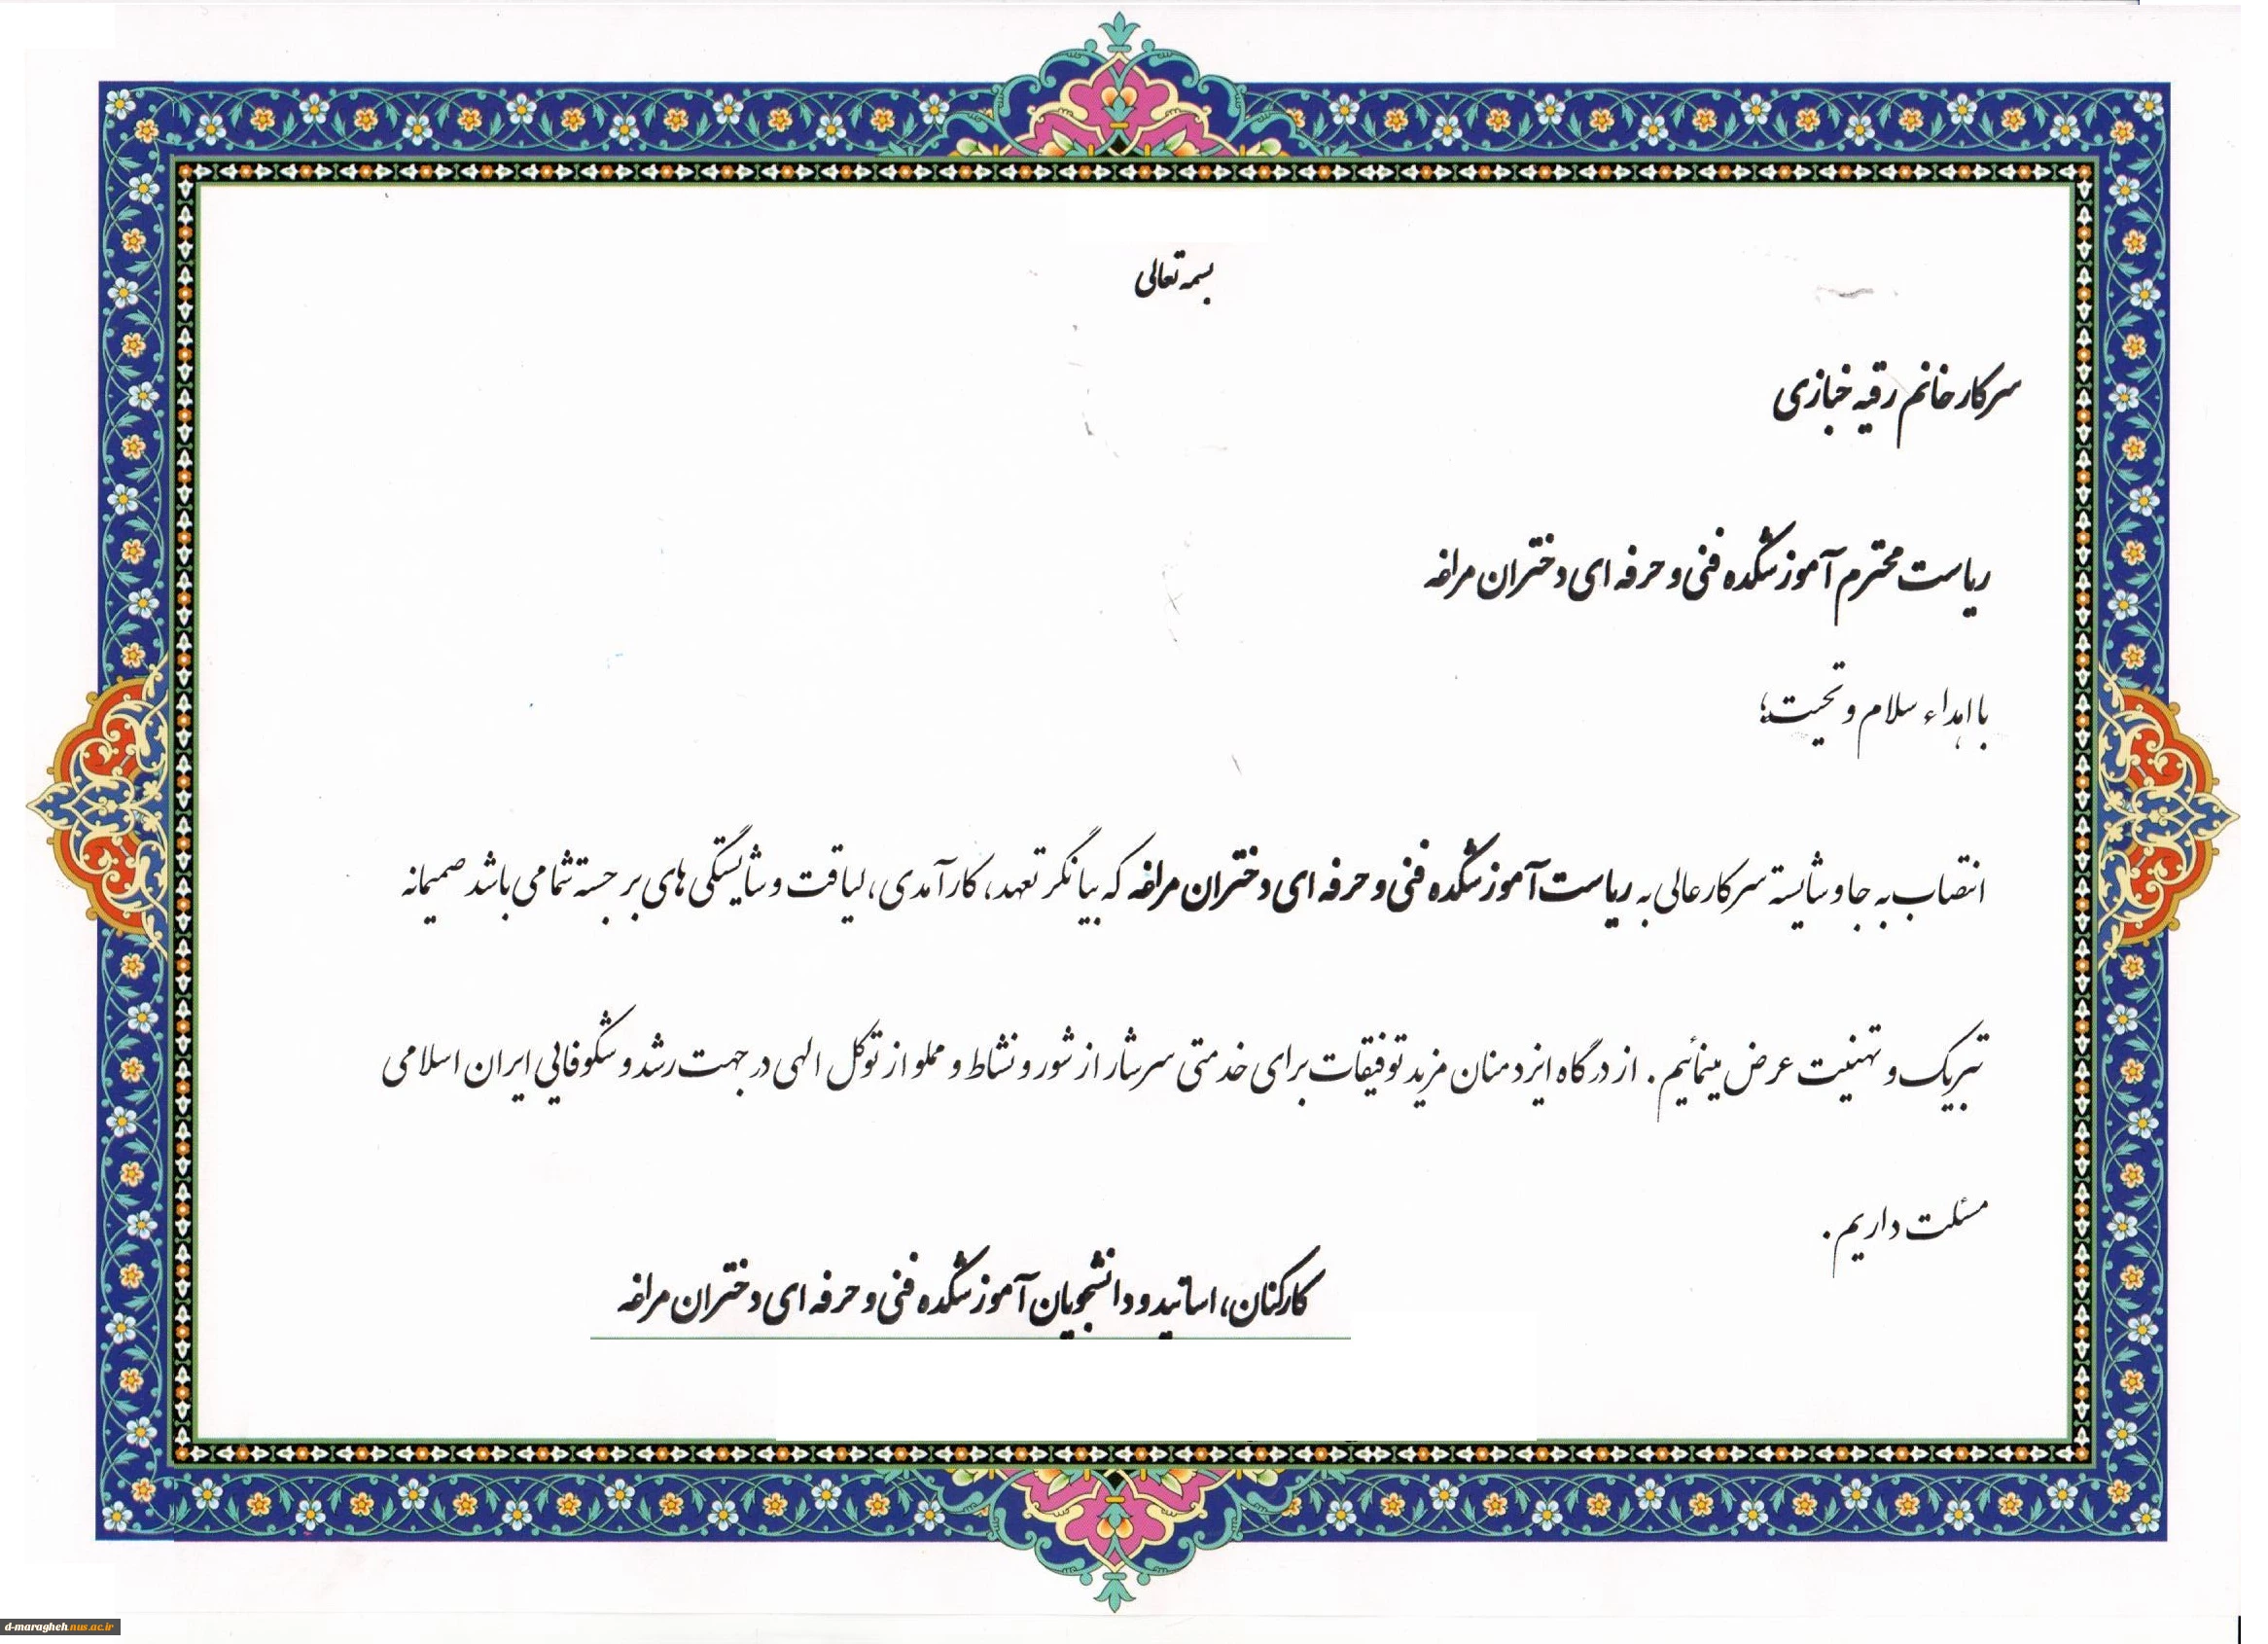 بسمه تعالی
سرکار خانم رقیه خبازی
ریاست محترم آموزشکده فنی و حرفه ای دختران مراغه
با اهداء سلام و تحیت؛
انتصاب به جا و شایسته سرکار عالی به ریاست آموزشکده فنی و حرفه ای دختران مراغه که بیانگر تعهد، کارآمدی، لیاقت و شایستگی های برجسته شما می باشد صمیمانه
تبریک و تهنیت عرض مینمائیم. از درگاه ایزد منان مزید توفیقات برای خدمتی سرشار از شور و نشاط و مملو از توکل الهی در جهت رشد و شکوفایی ایران اسلامی
مسئلت داریم.
کارکنان، اساتید و دانشجویان آموزشکده فنی و حرفه ای دختران مراغه
d-maragheh.nus.ac.ir